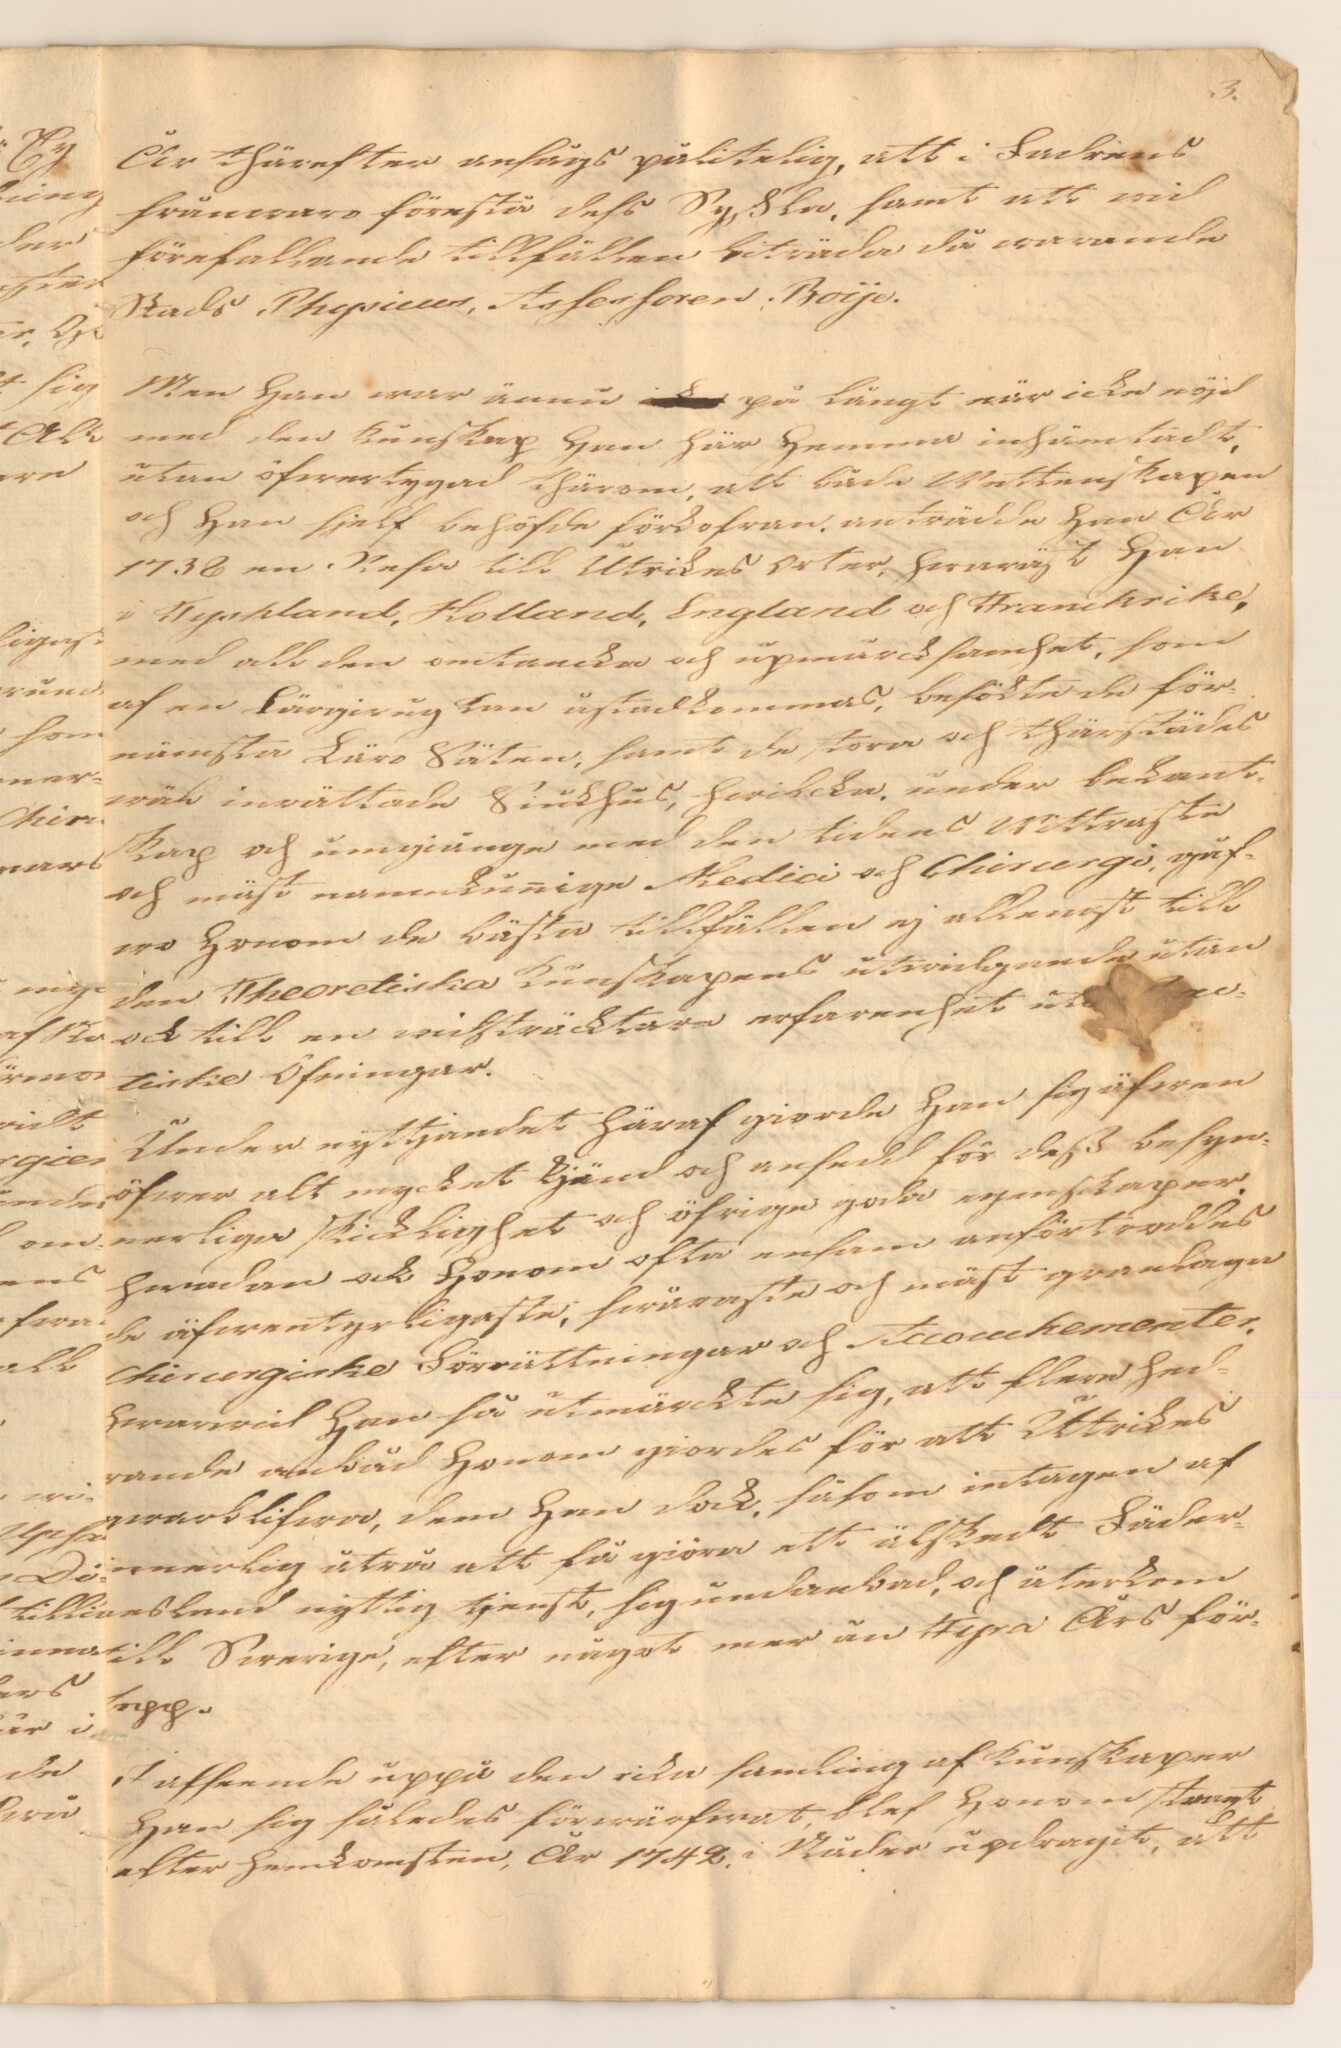 3.
År thärefter ansågs pålitelig, att i Fadrens
frånwaro förestå dess Syßla, samt att wid
förefallande tillfällen biträda då warande
Stads Physicus, Assessoren Boije.
Men Han war ännu på långt när icke nöjd
med den Kunskap Han här Hemma inhämtadt,
utan öfwertygad thärom, att både Wettenskapen
och Han sjelf behöfde förkofran, anträdde Han År
1738 en Resa till Utrikes Orter, hwaräst Han
i Tyskland, Holland, England och Franckrike,
med all den omtancka och upmärcksamhet, som
af en Lärgirug kan åstadkommas, besökte de för-
nämsta Läro Säten, samt de stora och thärstädes
wäl inrättade Siukhus, hwilcka, under bekant-
skap och umgiänge med den tidens Wittraste
och mäst namnkunnige Medici och Chirurgi, gåf-
wo Honom de bästa tillfällen ej allenast till
den Theoretiska Kunskapens utwidgande utan
ock till en widsträcktare erfarenhet
tiske Öfningar.
Under nyttjandet häraf giorde Han sig äfwen
öfwer alt mycket kjänd och ansedd för deß besyn-
nerliga skicklighet och öfrige goda egenskaper,
hwadan ock Honom ofta ensam anförtroddes
de äfwentyrligaste, swåraste och mäst granlaga
Chirurgiske Förrättningar och Accouchementer,
hwarwid Han så utmärckte sig, att flere hed-
rande anbud Honom giordes för att Utrikes
qwarblifwa, dem Han dock, såsom intagen af
innerlig åtrå att få giöra ett älskadt Fäder-
nesland nyttig tjenst, sig undanbad, och återkom
till Swerige, efter något mer än Fyra Års för-
lopp.
I afseende uppå den rika samling af Kunskaper
Han sig således förwärfwat, blef Honom strax
efter hemkomsten, År 1742, i Nåder updragit, att